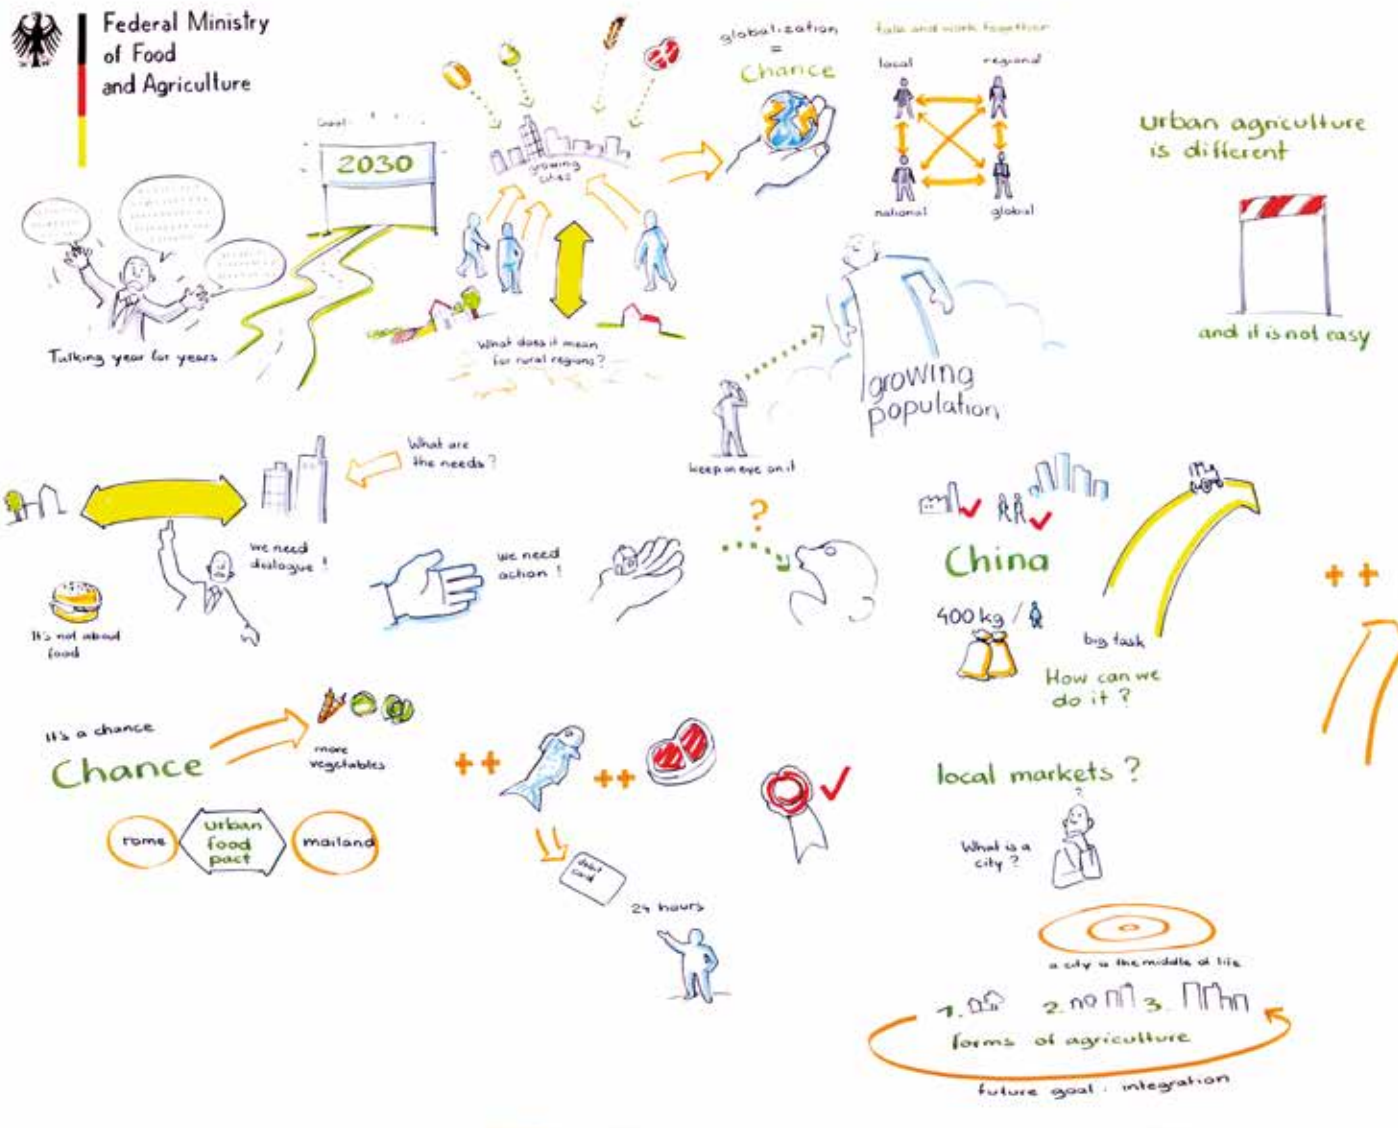 Federal Ministry
of Food
and Agriculture
Talking year for years
Goal:
2030
growing
cities
What does it mean
for rural regions?
globalization
=
Chance
talk and work together
local
regional
national
global
urban agriculture
is different
and it is not easy
growing
population
keep an eye on it
What are
the needs?
we need
dialogue!
It's not about
food
we need
action!
?
China
400 kg /
big task
How can we
do it?
++
It's a chance
Chance
more
vegetables
rome
urban
food
pact
mailand
++
++
debit
card
24 hours
local markets?
?
What is a
city?
a city is the middle of life
1.
2.
3.
forms of agriculture
future goal: integration